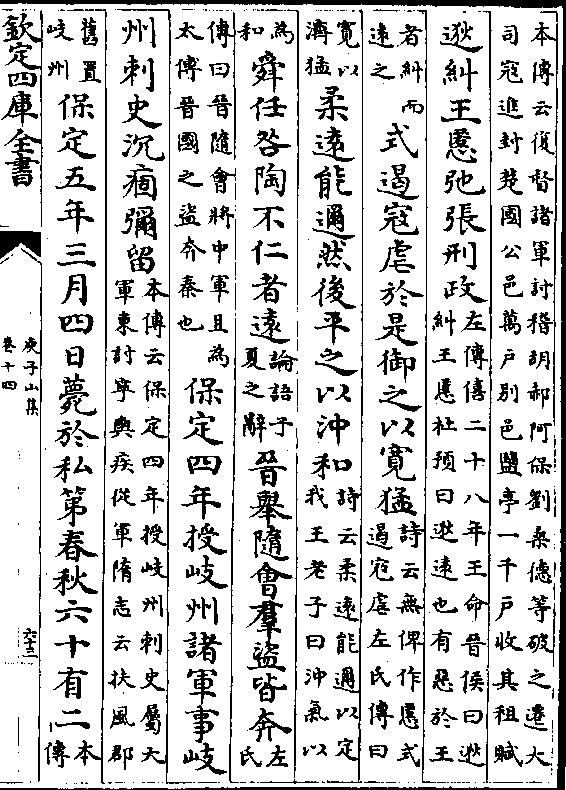 本傳云復督諸軍討稽胡郝阿保劉桑德等破之遷大
司寇進封楚國公邑萬户别邑鹽亭一千户收其租賦
逖糾王慝弛張刑政左傳僖二十八年王命晉侯曰逖
糾王慝杜預曰逖逺也有惡於王
者糾而
逺之
式遏寇虐於是御之以寛猛詩云無俾作慝式
遏寇虐左氏傳曰
寛以
濟猛
柔逺能邇然後平之以沖和詩云柔逺能邇以定
我王老子曰沖氣以
為
和
舜任咎陶不仁者逺論語子
夏之辭
晉舉隨會羣盜皆奔左
氏
傳曰晉隨會將中軍且為
太傅晉國之盜奔秦也
保定四年授岐州諸軍事岐
州刺史沉痼彌留本傳云保定四年授岐州刺史屬大
軍東討寧輿疾從軍隋志云扶風郡
舊置
岐州
保定五年三月四日薨於私第春秋六十有二本
傳
欽定四庫全書
庾子山集
卷十四
六十三